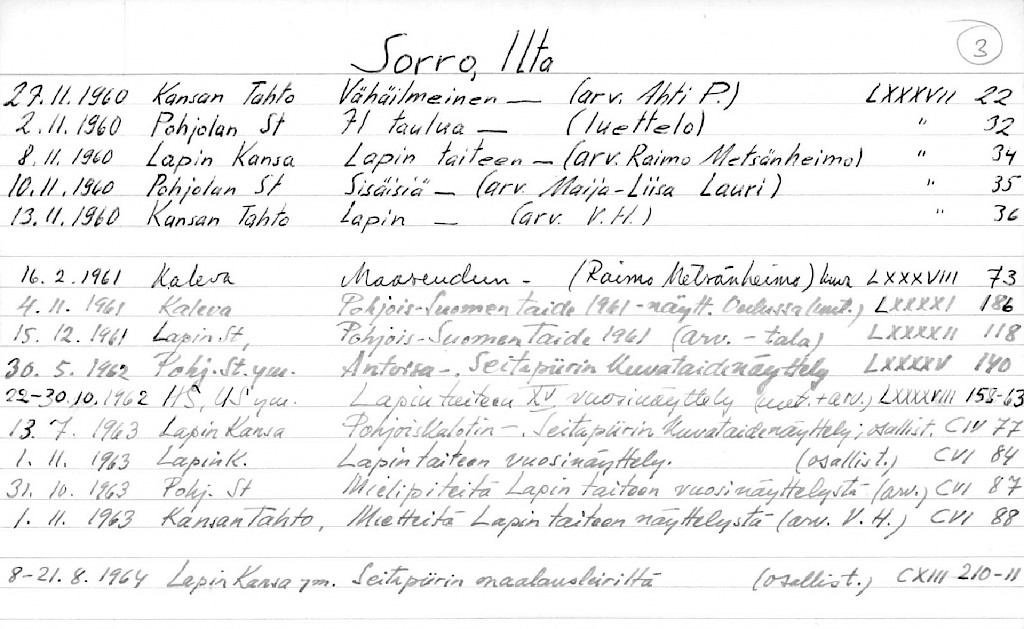 3
Sorro, Ilta
27.11.1960 Kansan Tahto Vähäilmeinen — (arv. Ahti P.) LXXXVII 22
2.11.1960 Pohjolan St 71 taulua — (luettelo) " 32
8.11.1960 Lapin Kansa Lapin taiteen — (arv. Raimo Metsänheimo) " 34
10.11.1960 Pohjolan St Sisäisiä — (arv. Maija-Liisa Lauri) " 35
13.11.1960 Kansan Tahto Lapin — (arv. V.H.) " 36
16.2.1961 Kaleva Maaseudun - (Raimo Metsänheimo) kuva LXXXVIII 73
4.11.1961 Kaleva Pohjois-Suomen taide 1961 -näytt. Oulussa (uut.) LXXXXI 186
15.12.1961 Lapin St, Pohjois-Suomen Taide 1961 (arv. - tala) LXXXXII 118
30.5.1962 Pohj. St. ym. -, Seitapiirin Kuvataidenäyttely LXXXXV 140
22-30.10.1962 HS, US ym. Lapin taiteen XV vuosinäyttely (uut. + arv.) LXXXXVIII 158-63
13.7.1963 Lapin Kansa PohjoisKalotin -, Seitapiirin Kuvataidenäyttely; osallist. CIV 77
1.11.1963 Lapin K. Lapin taiteen vuosinäyttely. (osallist.) CVI 84
31.10.1963 Pohj. St Mielipiteitä Lapin taiteen vuosinäyttelystä (arv.) CVI 87
1.11.1963 Kansan Tahto, Mietteitä Lapin taiteen näyttelystä (arv. V.H.) CVI 88
8-21.8.1964 Lapin Kansa ym. Seitapiirin maalausleiriltä (osallist.) CXIII 210-11